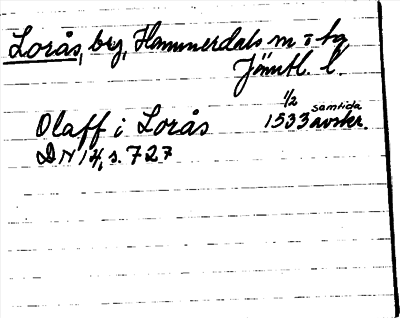 Lorås, by, Hammerdals sn o tg
Jämtl. l.
1/2 samtida
Olaff i Lorås 1533 avskr.
DN 14, s. 727